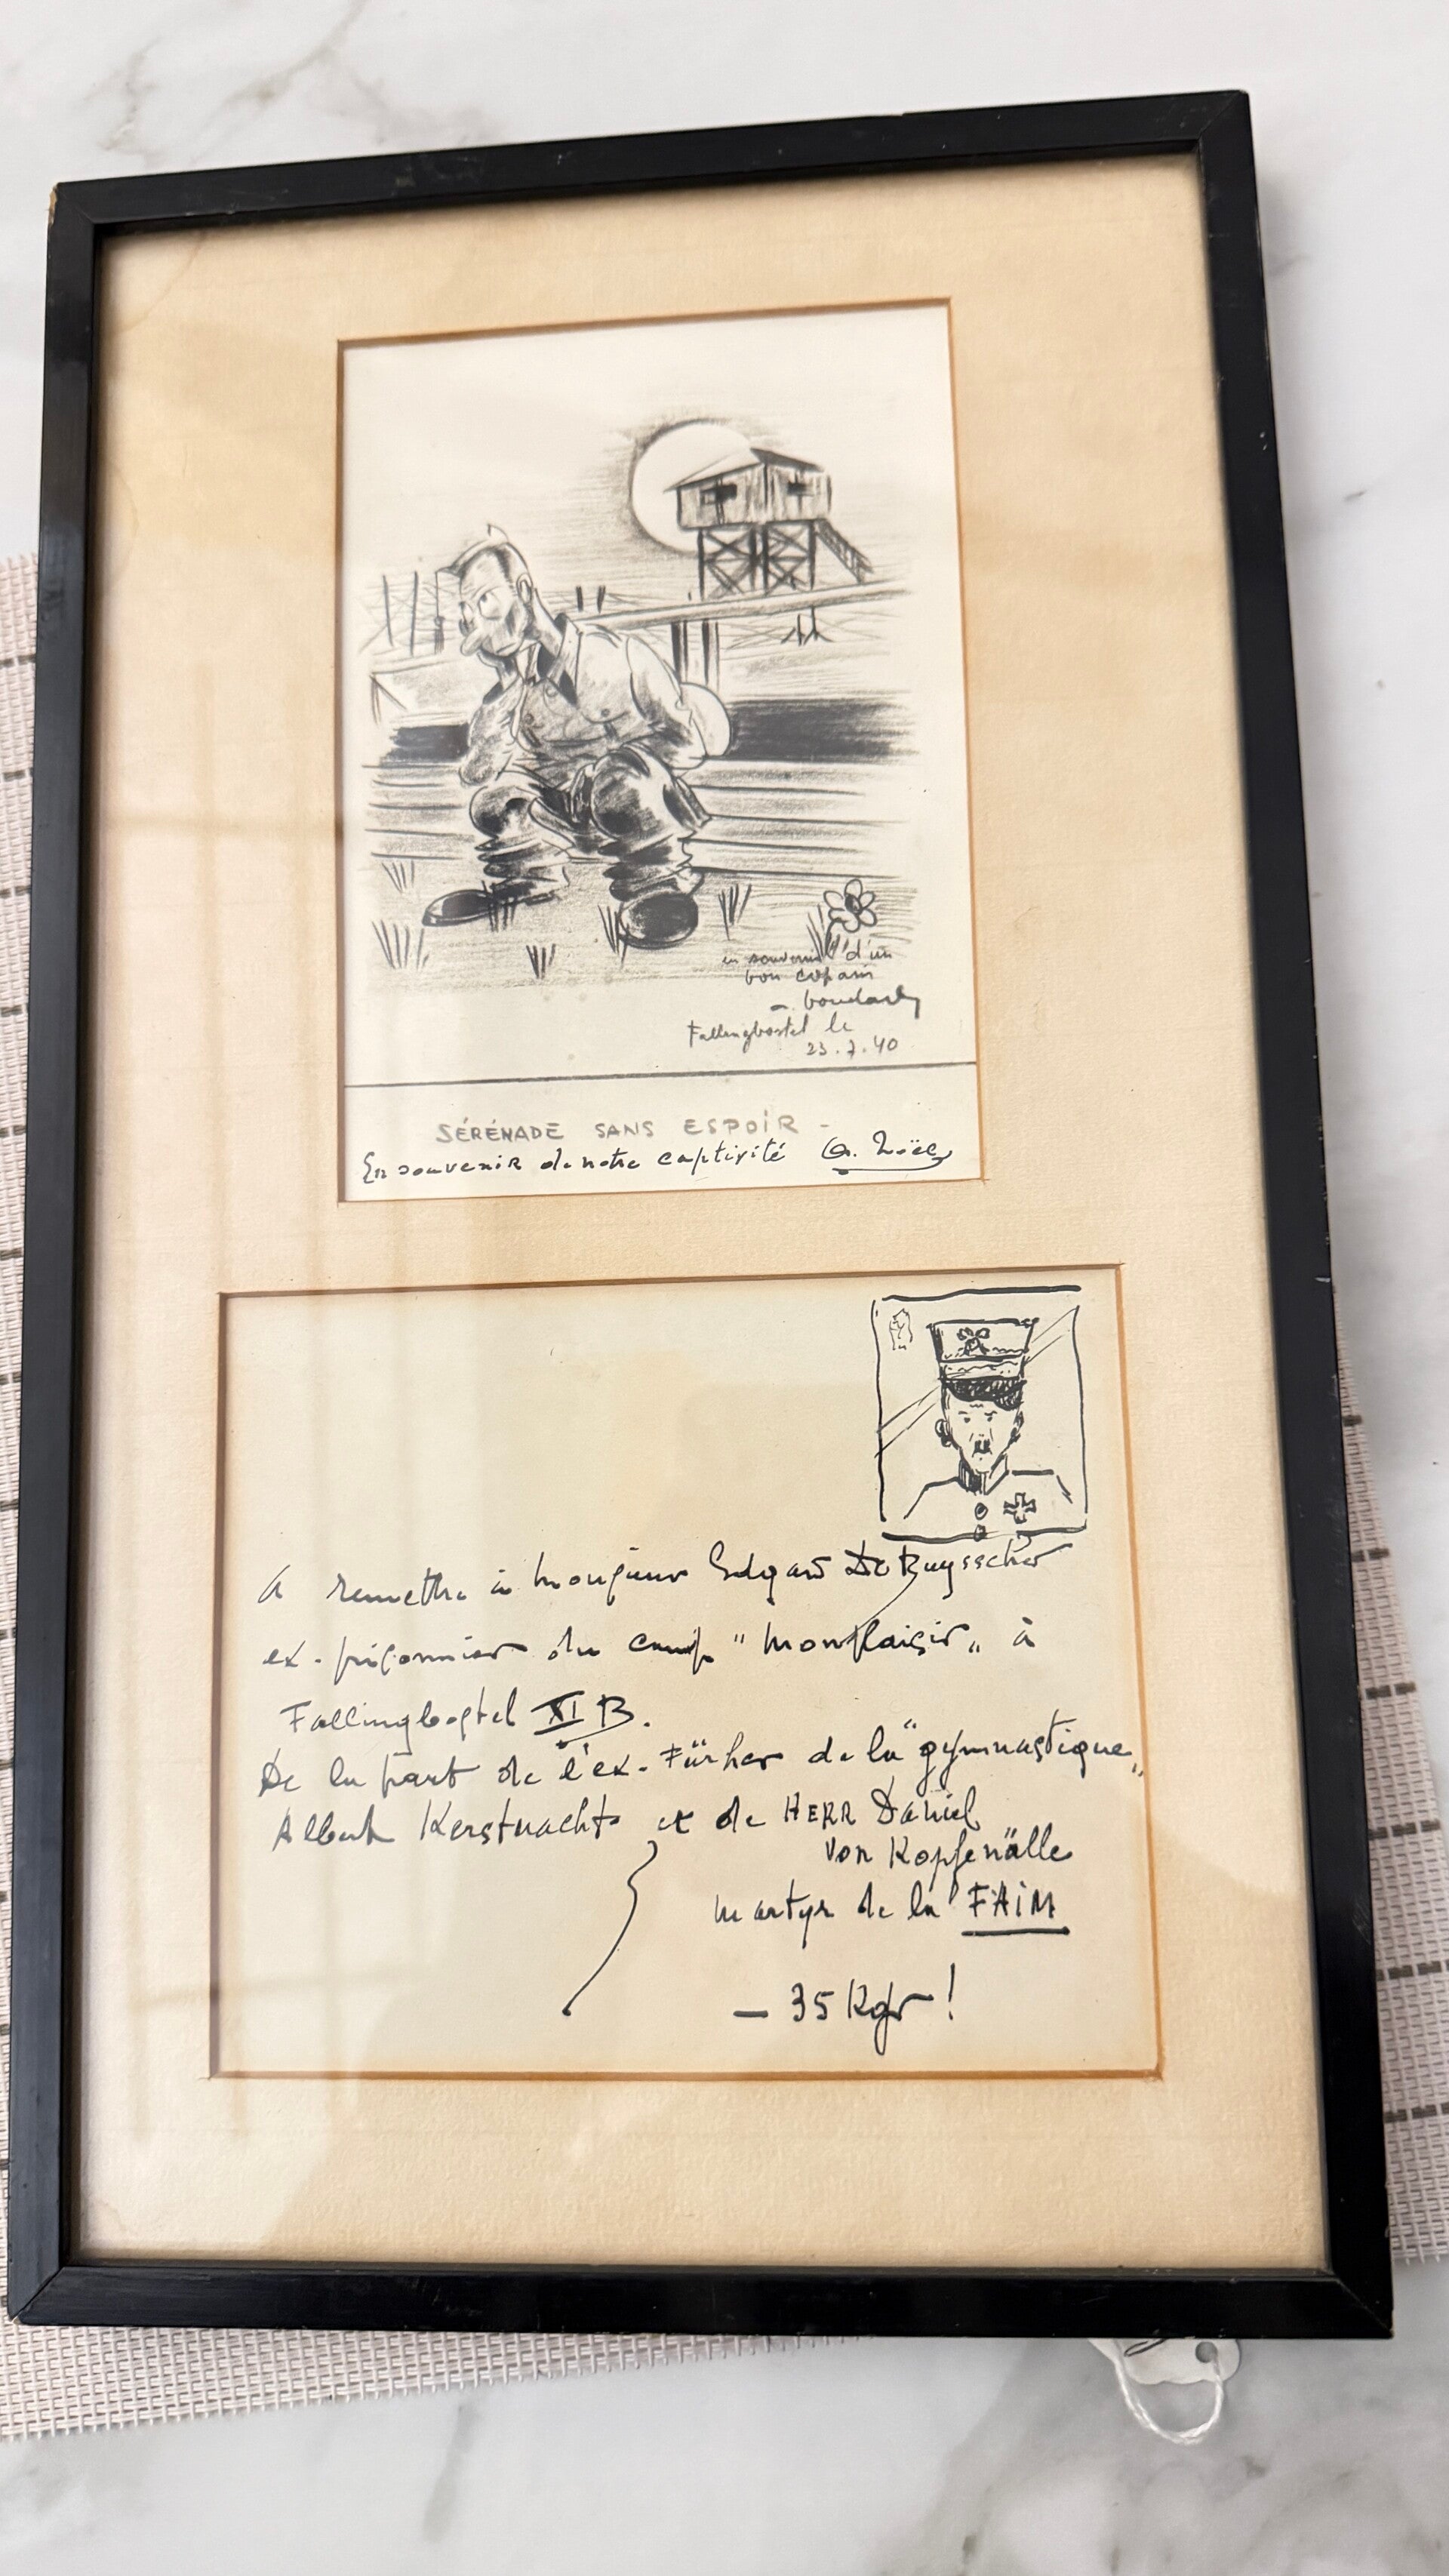 en souvenir d'un
bon copain
Fallingbostel le
23.7.40
SÉRÉNADE SANS ESPOIR -
En souvenir de notre captivité G. Noël
A remettre à Monsieur Edgard De Ruysscher
ex-prisonnier du camp "Monplaisir" à
Fallingbostel XI B.
De la part de l'ex-Fürher de la "gymnastique"
Albert Kerstnacht et de HERR Daniel
von Kopfenälle
martyr de la FAIM
- 35 Kgr !